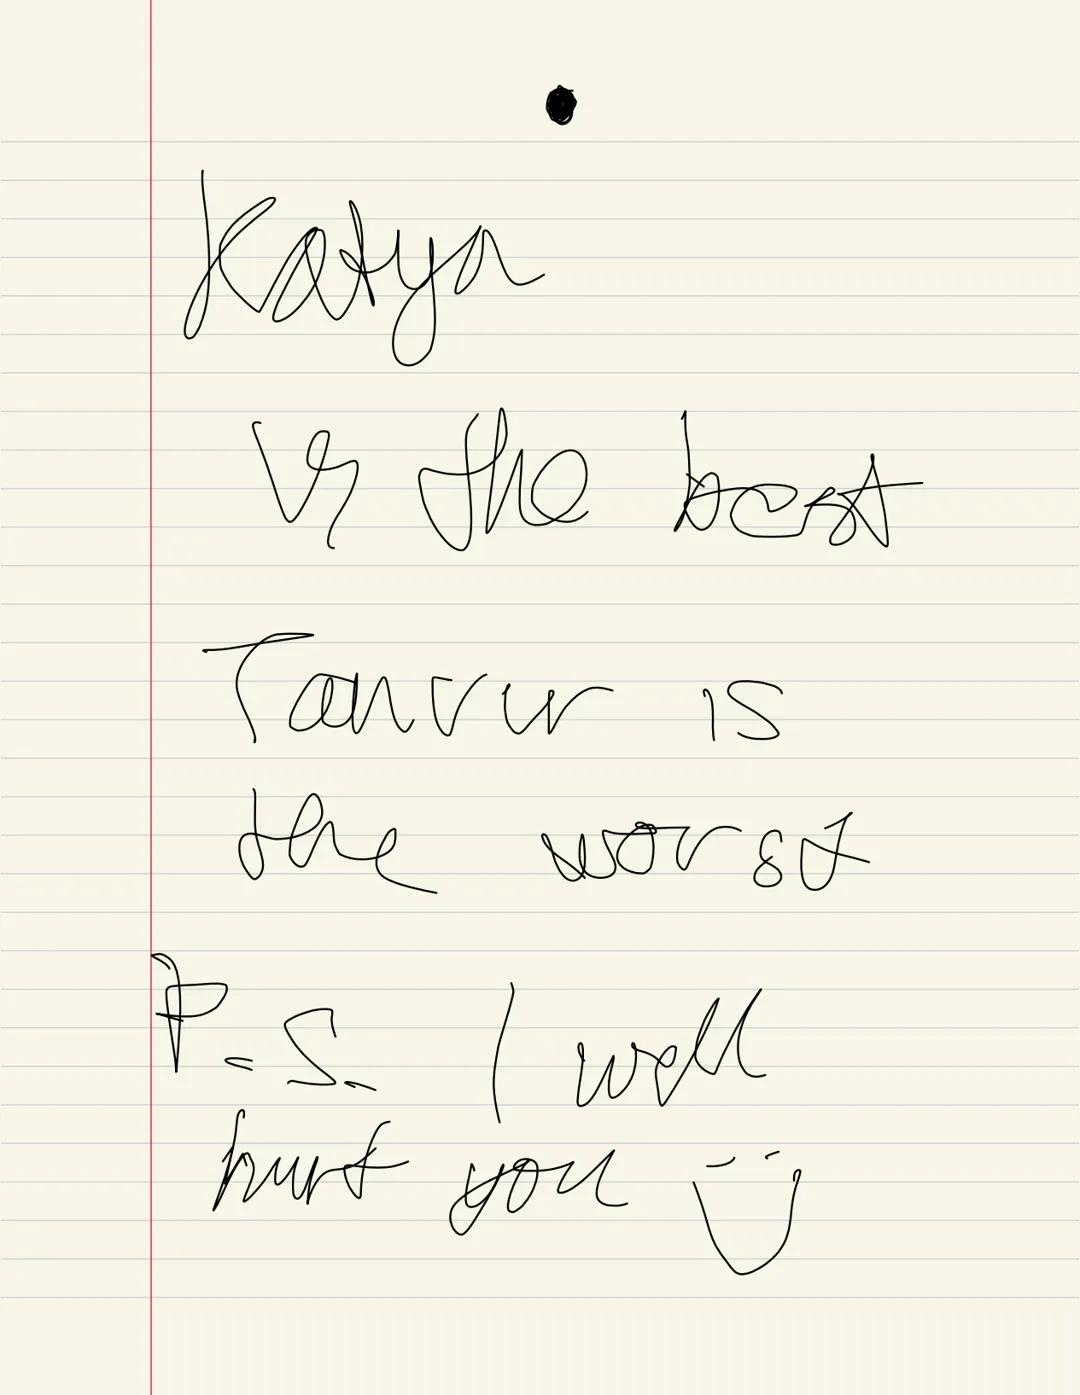 Katya
is the best
Tanvir is
the worst
P.S. I will
hurt you